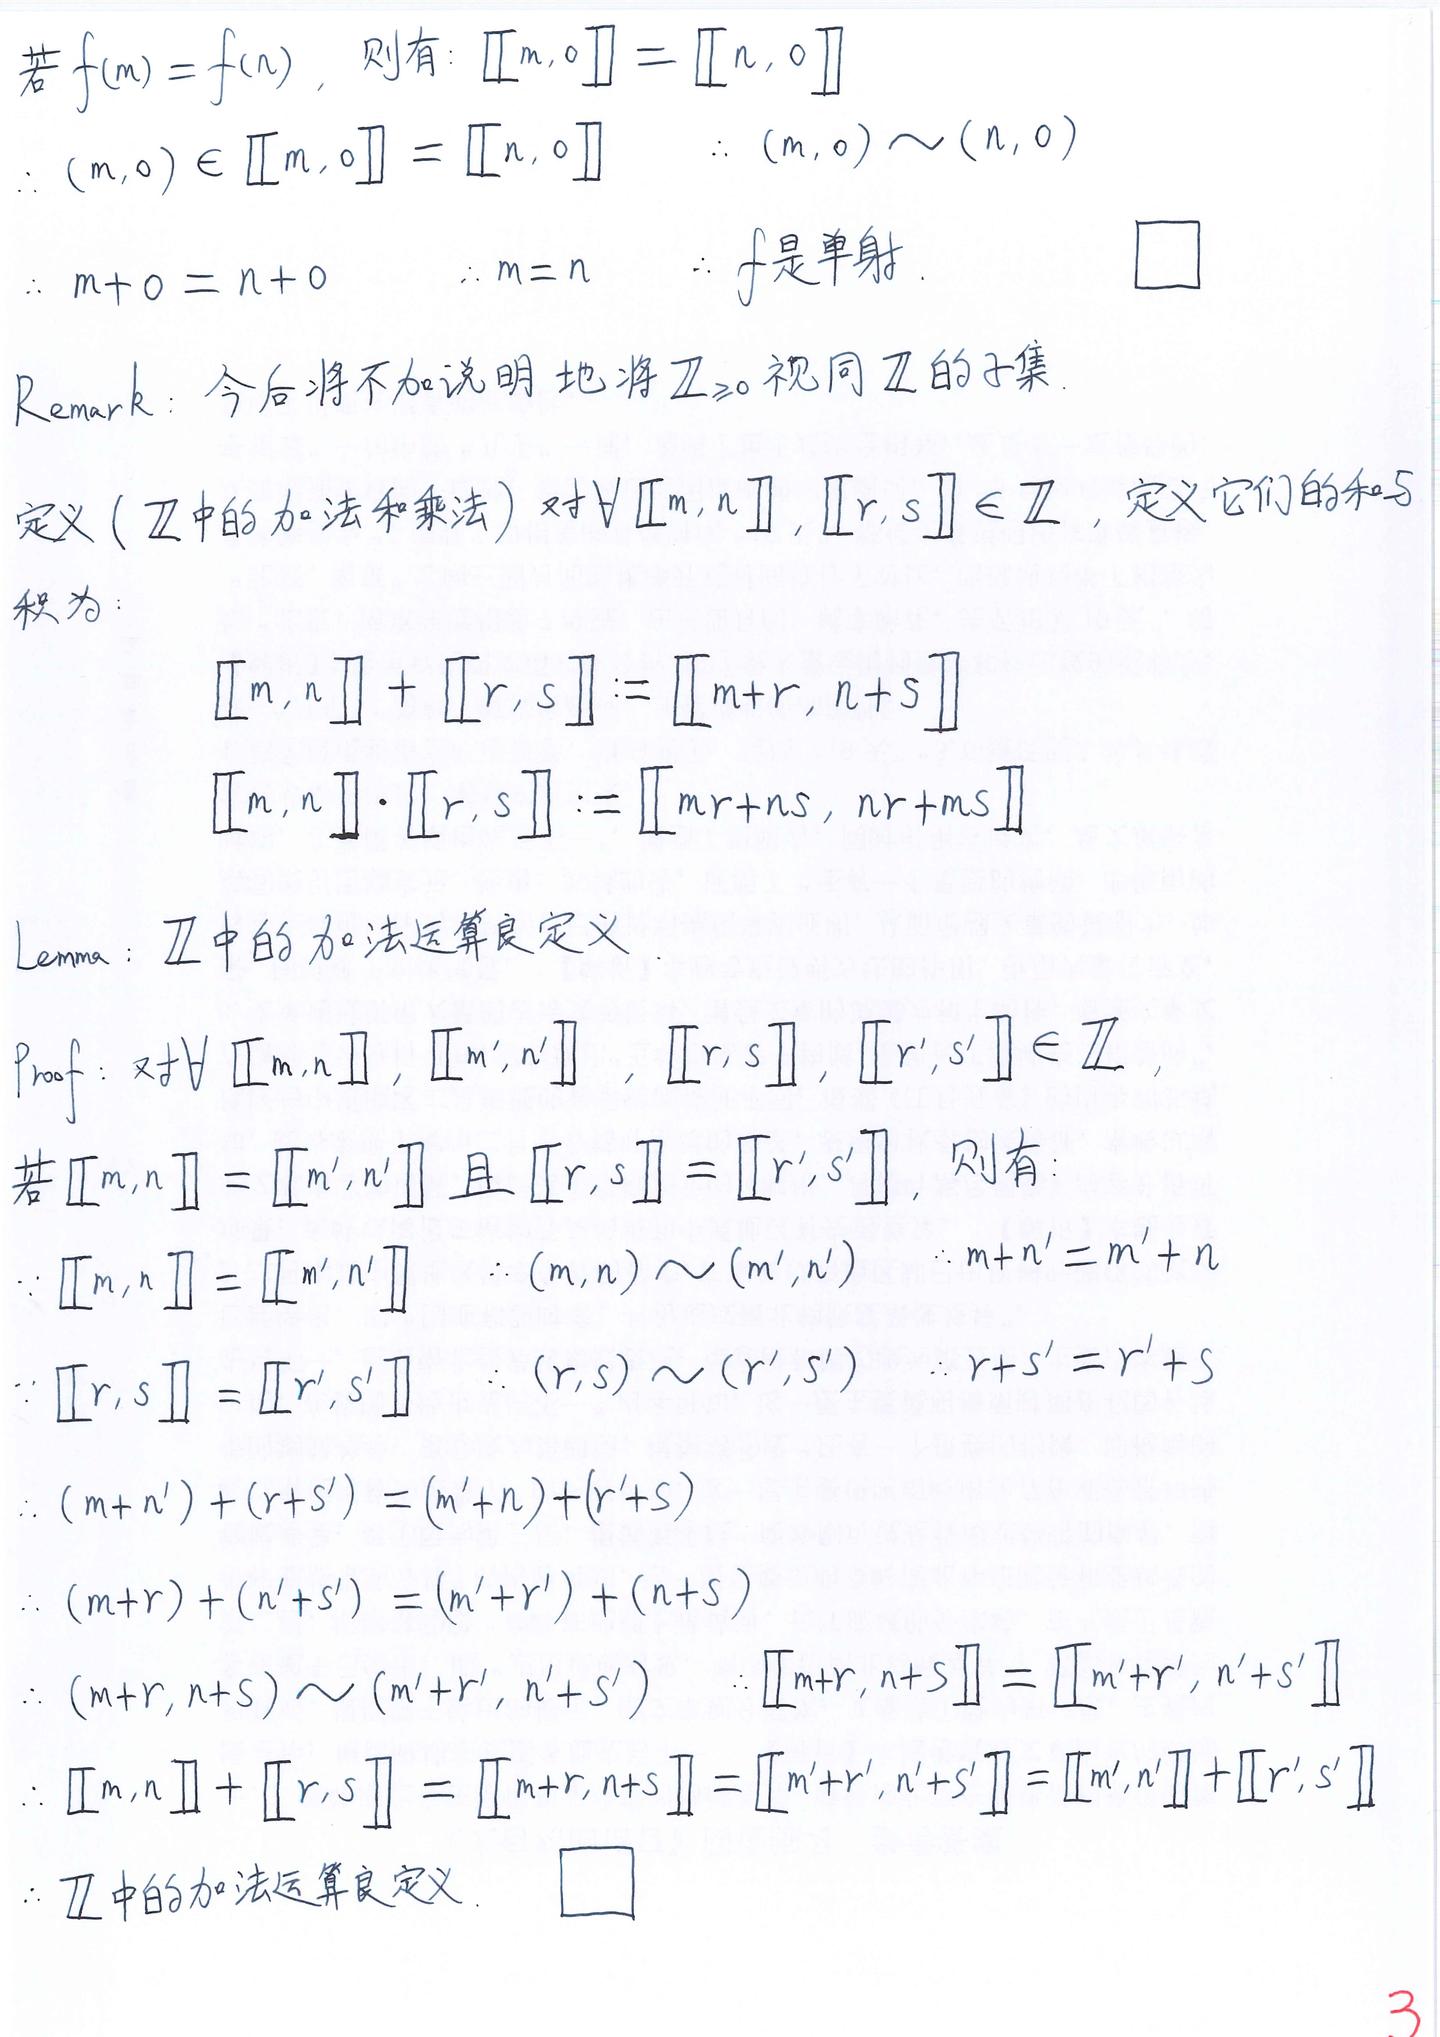 若 f(m) = f(n), 则有: ⟦m, 0⟧ = ⟦n, 0⟧
∴ (m, 0) ∈ ⟦m, 0⟧ = ⟦n, 0⟧ ∴ (m, 0) ~ (n, 0)
∴ m+0 = n+0 ∴ m = n ∴ f是单射. □
Remark: 今后将不加说明地将ℤ≥0视同ℤ的子集.
定义 (ℤ中的加法和乘法) 对∀⟦m, n⟧, ⟦r, s⟧ ∈ ℤ, 定义它们的和与
积为:
⟦m, n⟧ + ⟦r, s⟧ := ⟦m+r, n+s⟧
⟦m, n⟧ · ⟦r, s⟧ := ⟦mr+ns, nr+ms⟧
Lemma: ℤ中的加法运算良定义
Proof: 对∀ ⟦m, n⟧, ⟦m′, n′⟧, ⟦r, s⟧, ⟦r′, s′⟧ ∈ ℤ,
若⟦m, n⟧ = ⟦m′, n′⟧ 且 ⟦r, s⟧ = ⟦r′, s′⟧, 则有:
∵ ⟦m, n⟧ = ⟦m′, n′⟧ ∴ (m, n) ~ (m′, n′) ∴ m+n′ = m′+n
∵ ⟦r, s⟧ = ⟦r′, s′⟧ ∴ (r, s) ~ (r′, s′) ∴ r+s′ = r′+s
∴ (m+n′) + (r+s′) = (m′+n) + (r′+s)
∴ (m+r) + (n′+s′) = (m′+r′) + (n+s)
∴ (m+r, n+s) ~ (m′+r′, n′+s′) ∴ ⟦m+r, n+s⟧ = ⟦m′+r′, n′+s′⟧
∴ ⟦m, n⟧ + ⟦r, s⟧ = ⟦m+r, n+s⟧ = ⟦m′+r′, n′+s′⟧ = ⟦m′, n′⟧ + ⟦r′, s′⟧
∴ ℤ中的加法运算良定义. □
3